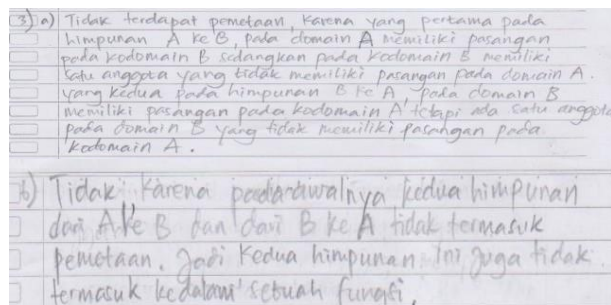 3) a) Tidak terdapat pemetaan, karena yang pertama pada
himpunan A ke B, pada domain A memiliki pasangan
pada kodomain B sedangkan pada kodomain B memiliki
satu anggota yang tidak memiliki pasangan pada domain A.
yang kedua pada himpunan B ke A, pada domain B
memiliki pasangan pada kodomain A, tetapi ada satu anggota
pada domain B yang tidak memiliki pasangan pada
kodomain A.
b) Tidak, karena pada awalnya kedua himpunan
dari A ke B dan dari B ke A tidak termasuk
pemetaan. Jadi kedua himpunan ini juga tidak
termasuk kedalam sebuah fungsi.